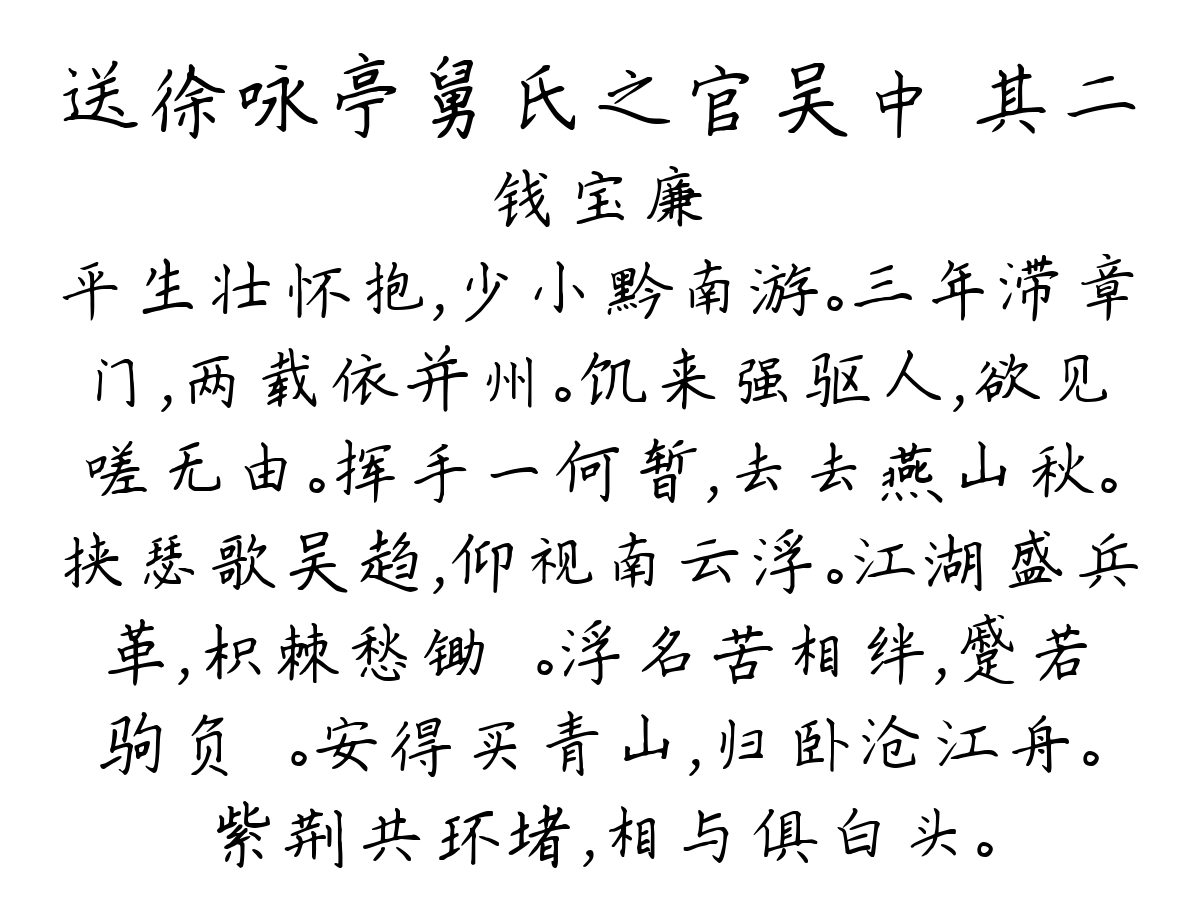 送徐咏亭舅氏之官吴中 其二
钱宝廉
平生壮怀抱,少小黔南游。三年滞章
门,两载依并州。饥来强驱人,欲见
嗟无由。挥手一何暂,去去燕山秋。
挟瑟歌吴趋,仰视南云浮。江湖盛兵
革,枳棘愁锄 。浮名苦相绊,蹙若
驹负 。安得买青山,归卧沧江舟。
紫荆共环堵,相与俱白头。